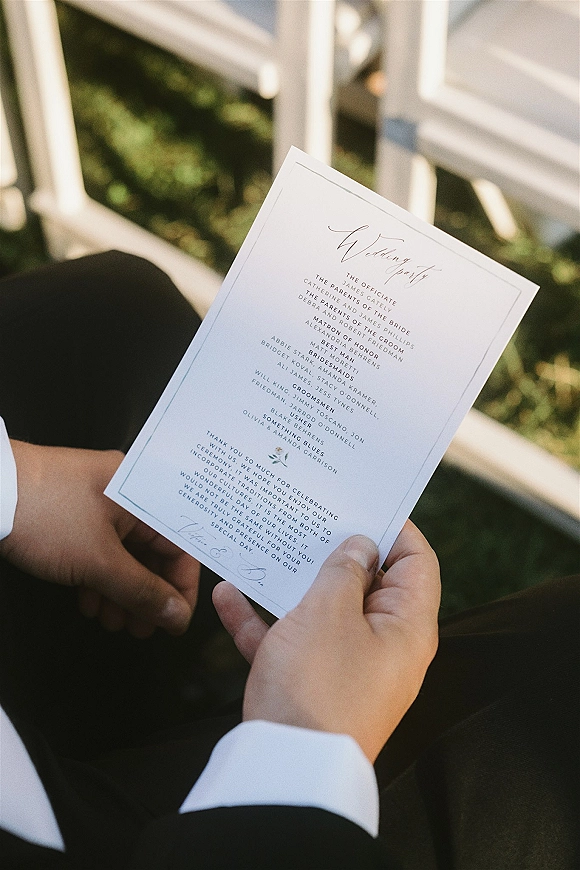 Wedding
party
THE OFFICIATE
JAMES GATELY
THE PARENTS OF THE BRIDE
CATHERINE AND JAMES PHILLIPS
THE PARENTS OF THE GROOM
DEBRA AND ROBERT FRIEDMAN
MATRON OF HONOR
ALEXANDRIA BEHRENS
BEST MAN
MATT MORETTI
BRIDESMAIDS
ABBIE STARK, AMANDA KRAMER,
BRIDGET KOVAL, STACY O'DONNELL,
ALI JAMES, JESS TYNES
GROOMSMEN
WILL KING, JIMMY TOSCANO, JON
FRIEDMAN, JARROD O'DONNELL
USHER
BLAKE BEHRENS
SOMETHING BLUES
OLIVIA & AMANDA GARRISON
THANK YOU SO MUCH FOR CELEBRATING
WITH US. WE HOPE YOU ENJOY OUR
CEREMONY, IT WAS IMPORTANT TO US TO
INCORPORATE TRADITIONS FROM BOTH OF
OUR CULTURES. IT IS THE MOST
WONDERFUL DAY OF OUR LIVES. IT
WOULD NOT BE THE SAME WITHOUT YOU!
WE ARE TRULY GRATEFUL FOR YOUR
GENEROSITY AND PRESENCE ON OUR
SPECIAL DAY.
&